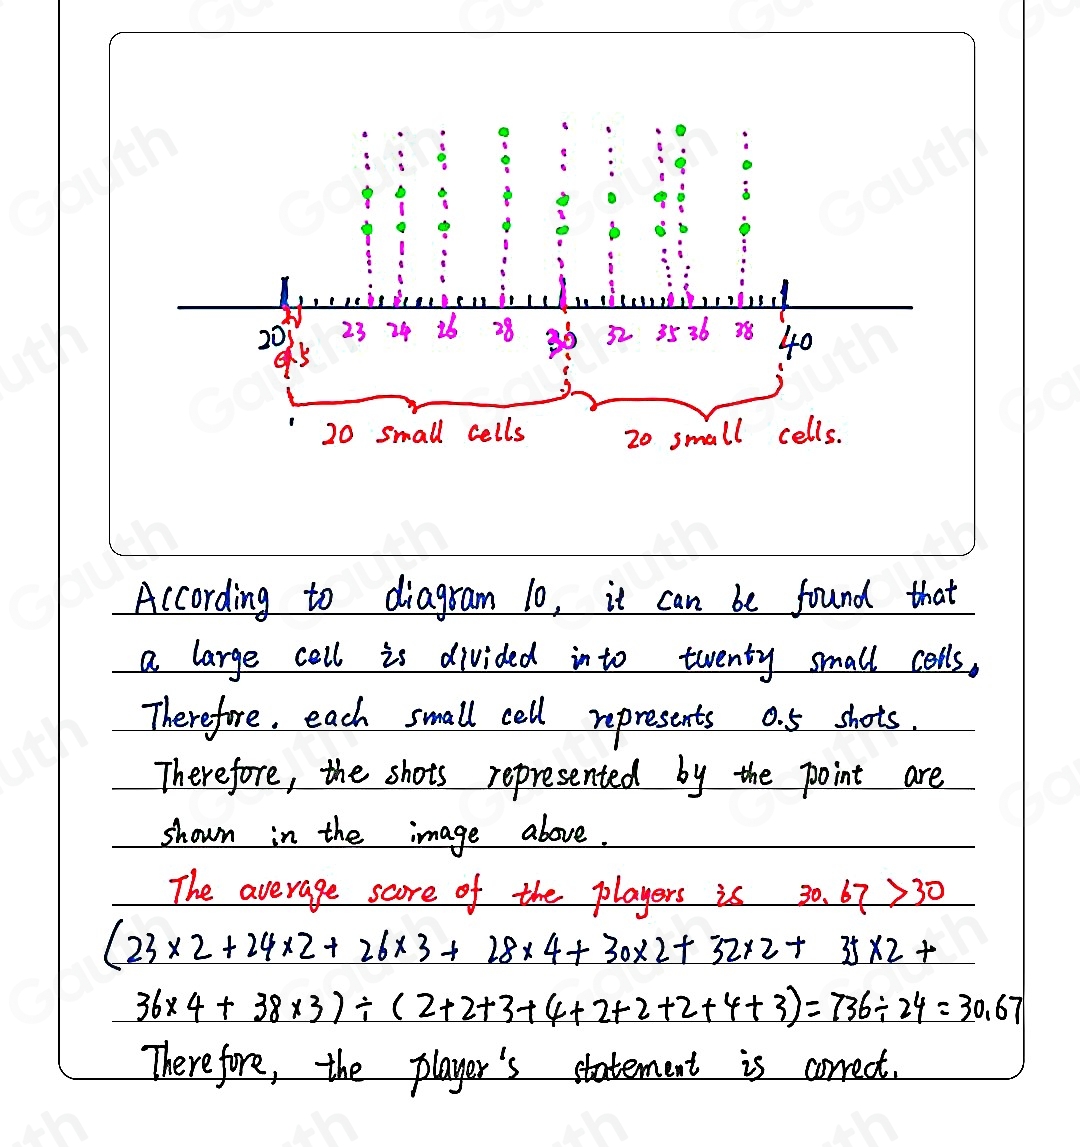 23 24 26 28 30 32 35 36 38
20 40
0.5
20 small cells 20 small cells.
According to diagram 10, it can be found that
a large cell is divided into twenty small cells.
Therefore. each small cell represents 0.5 shots.
Therefore, the shots represented by the point are
shown in the image above.
The average score of the players is 30.67 >30
(23×2+24×2+ 26×3+ 28×4+30×2+ 32×2+ 35×2+
36×4 + 38×3) ÷ (2+2+3+4+2+2+2+4+3)=736÷24=30.67
Therefore, the player's statement is correct.
Gauth